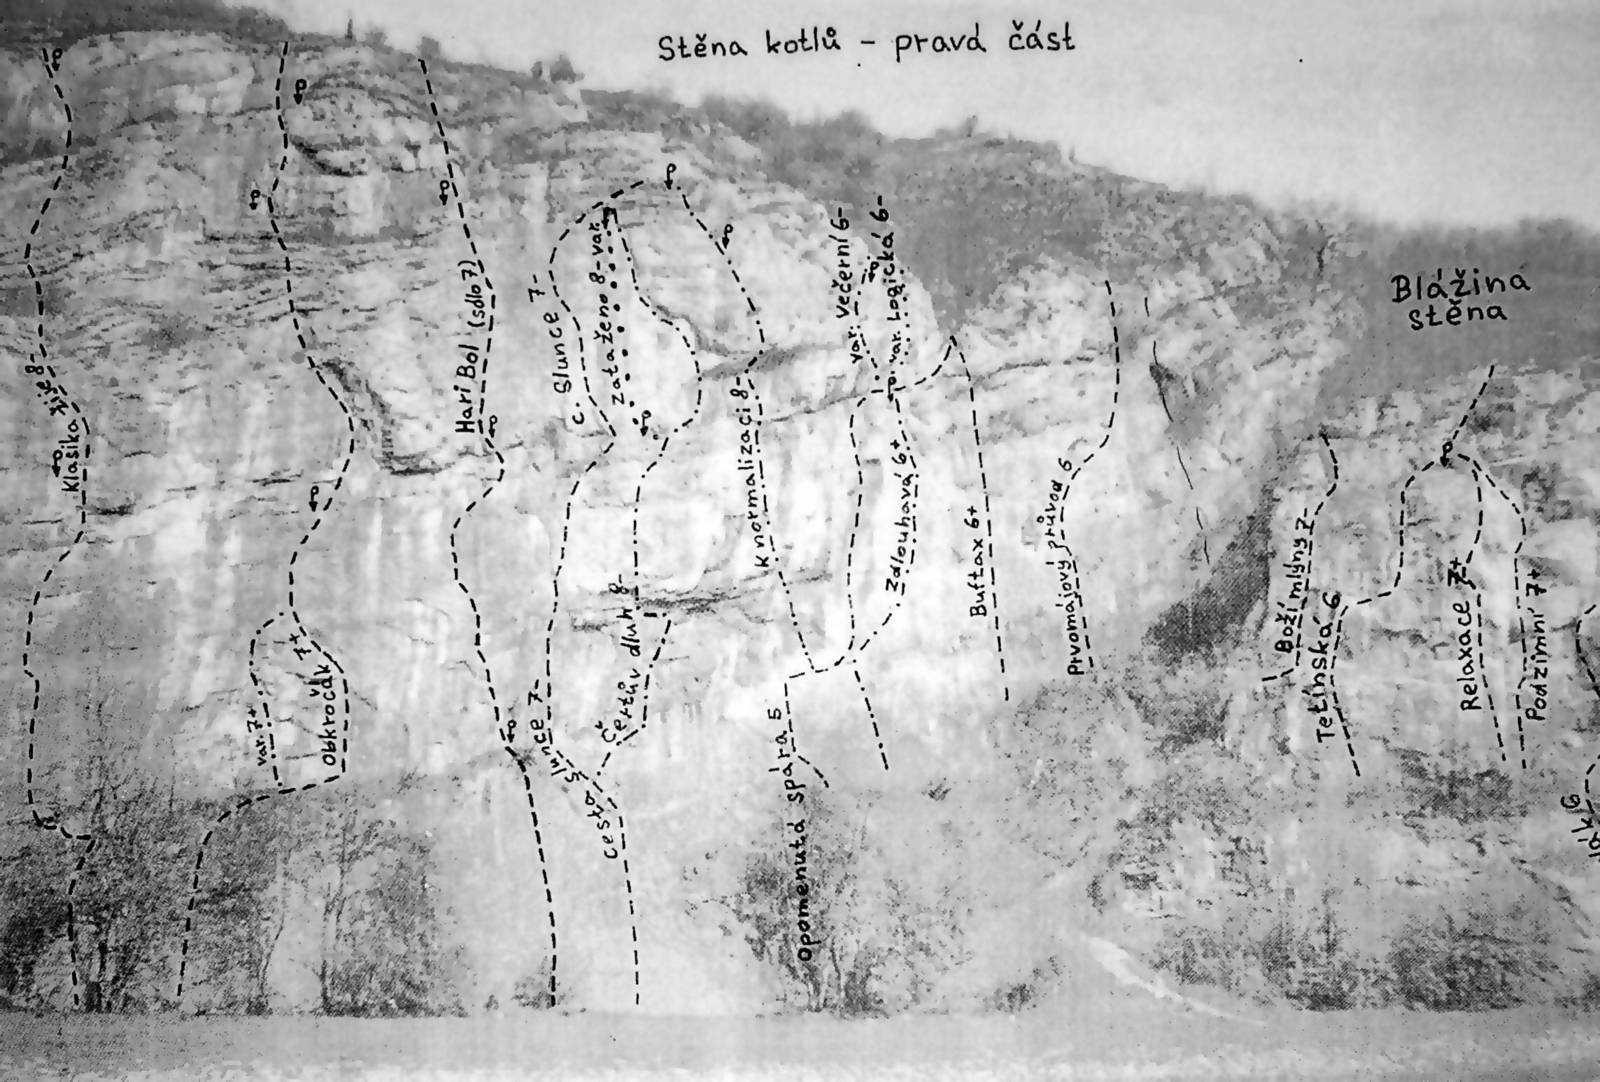 Stěna kotlů - pravá část
Blážina
stěna
Klasika žije 8-
var. 7+
obkročák 7+
Hari Bol (sólo 7)
c. Slunce 7-
zataženo 8- var.
K normalizaci 8-
var. Večerní 6-
var. Logická 6-
Zdlouhavá 6+
Buftax 6+
Prvomájový průvod 6
Slunce 7-
Čertův dluh 8-
cesta
opomenutá spára 5
Boží mlýny 7-
Tetínská 6
Relaxace 7+
Podzimní 7+